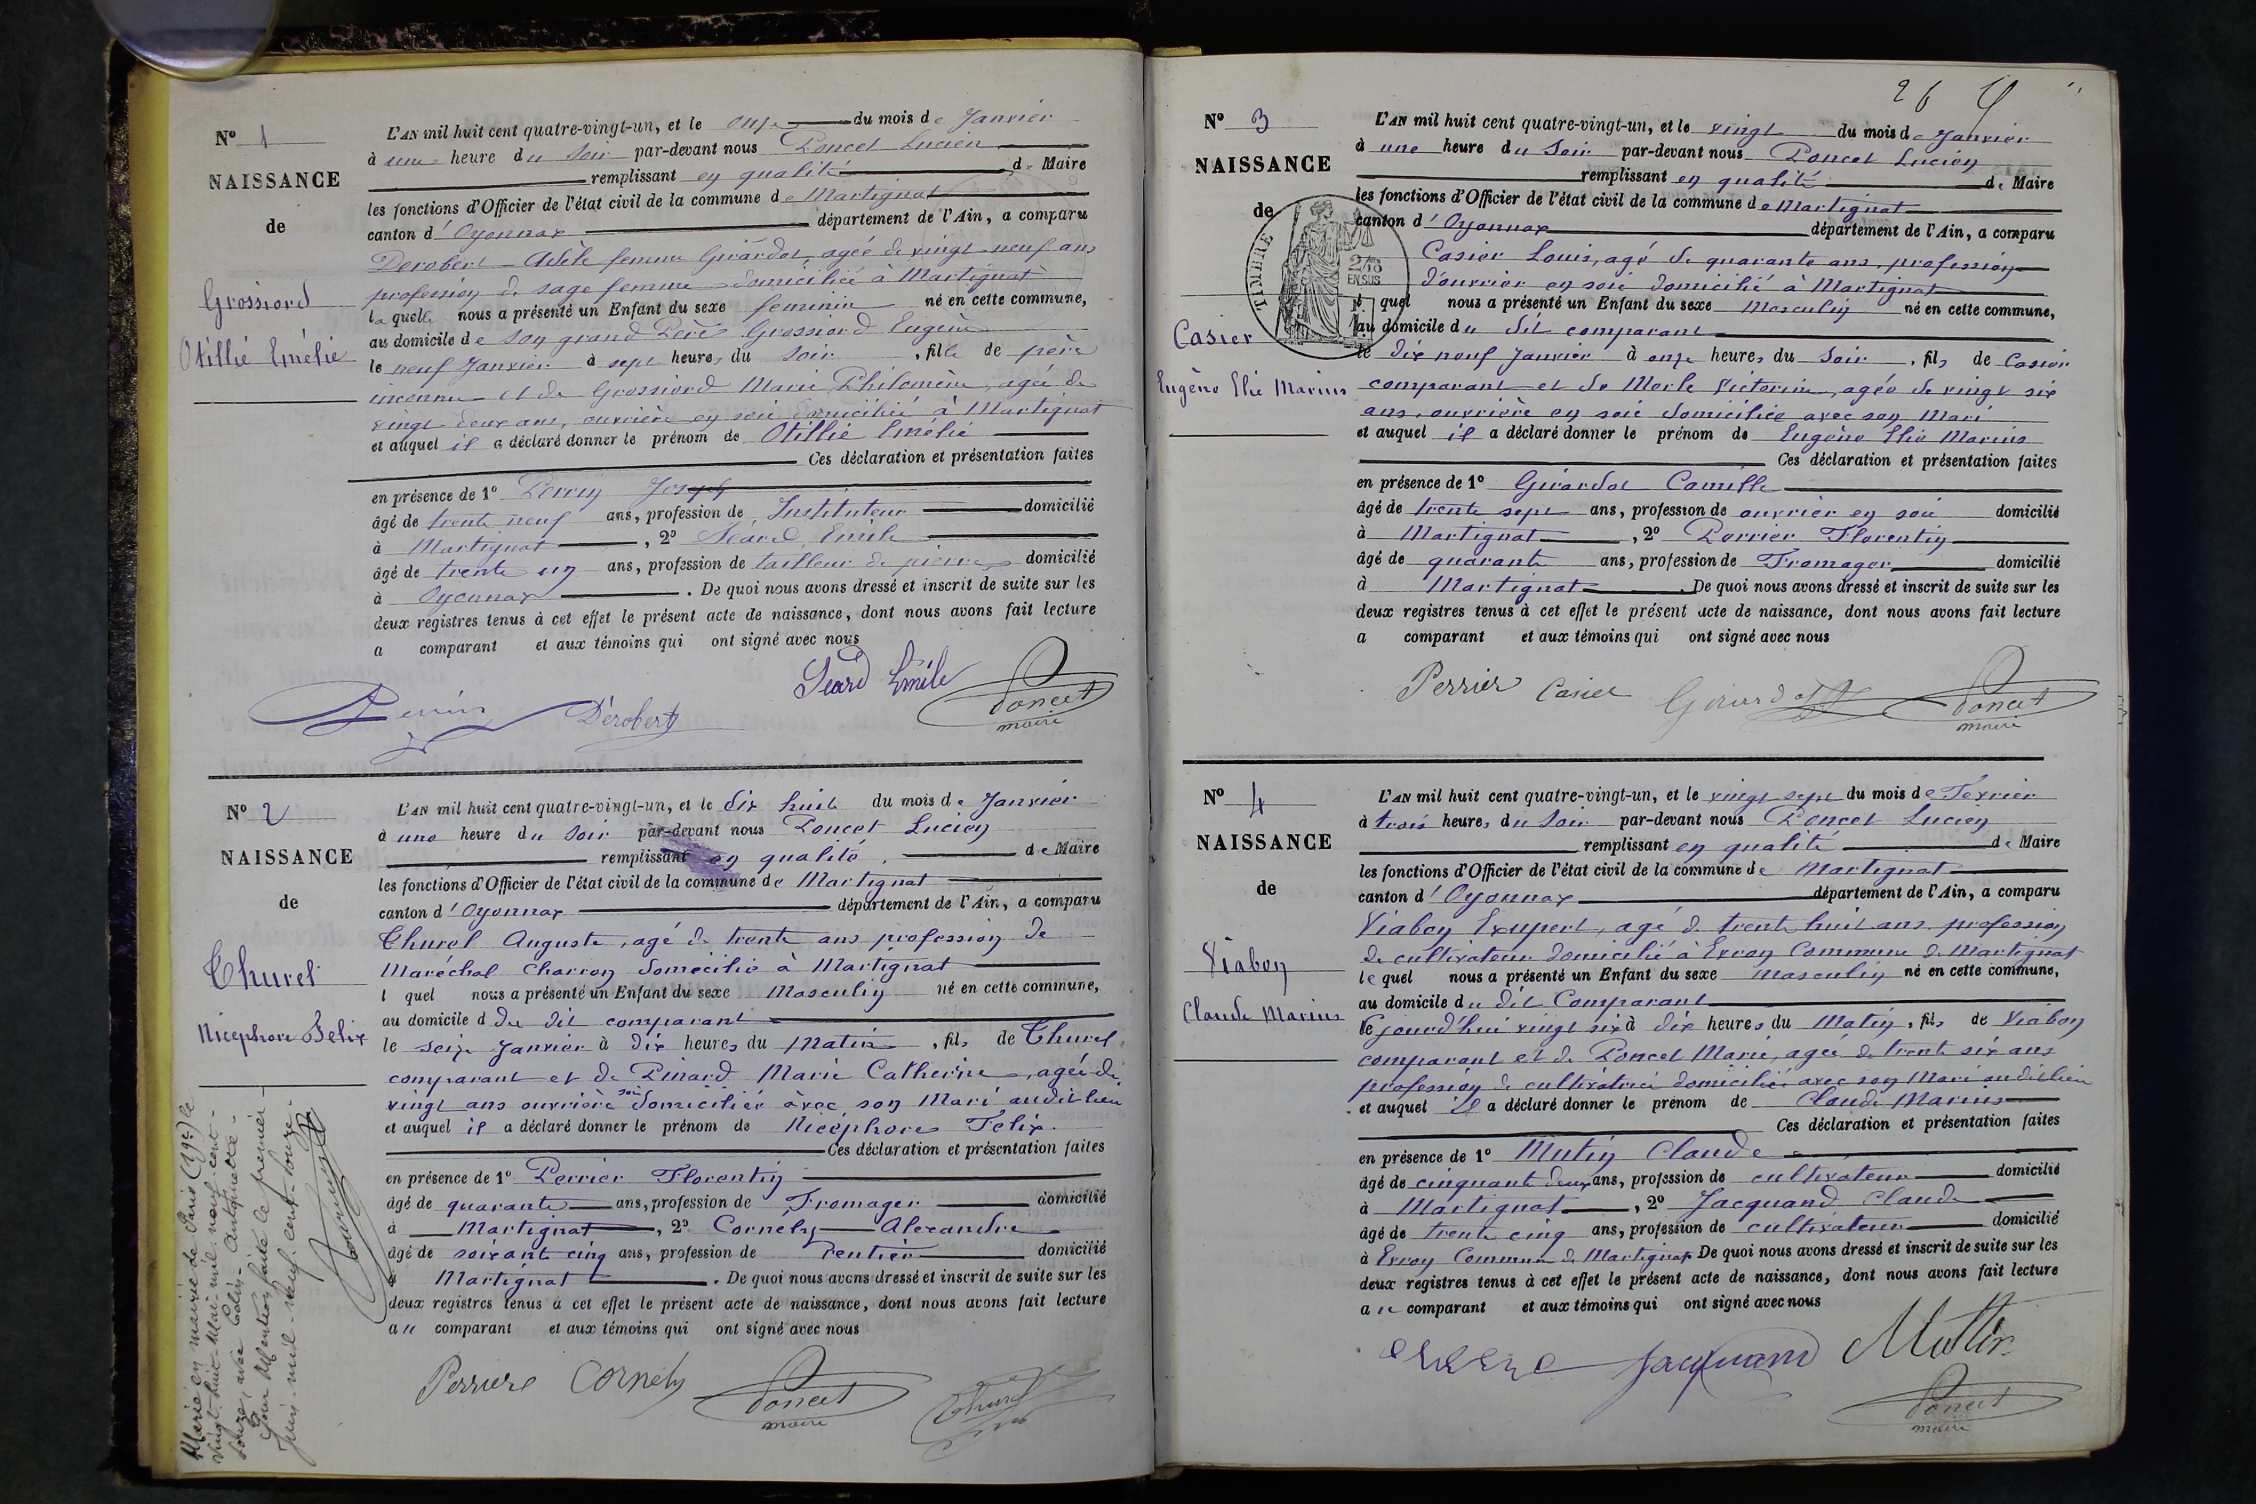 N° 1
NAISSANCE
de
Grossiord
Otillie Emélie
L'AN mil huit cent quatre-vingt-un, et le onze du mois de Janvier
à une heure du Soir par-devant nous Poncet Lucien
remplissant en qualité de Maire
les fonctions d'Officier de l'état civil de la commune de Martignat
canton d'Oyonnax département de l'Ain, a comparu
Derobert Adèle femme Girardot, agée de vingt neuf ans
profession de sage femme domiciliée à Martignat
laquelle nous a présenté un Enfant du sexe feminin né en cette commune,
au domicile de son grand Père Grossiord Eugène
le neuf Janvier à sept heures du Soir, fille de père
inconnu et de Grossiord Marie Philomène, agée de
vingt deux ans, ouvrière en soie domiciliée à Martignat
et auquel il a déclaré donner le prénom de Otillie Emélie
Ces déclaration et présentation faites
en présence de 1° Perrin Joseph
âgé de trente neuf ans, profession de Instituteur domicilié
à Martignat, 2° Séard Emile
âgé de trente un ans, profession de tailleur de pierres domicilié
à Oyonnax. De quoi nous avons dressé et inscrit de suite sur les
deux registres tenus à cet effet le présent acte de naissance, dont nous avons fait lecture
a comparant et aux témoins qui ont signé avec nous
Séard Emile
Perrin Dérobert Poncet
maire
N° 2
NAISSANCE
de
Thurel
Nicephore Felix
Marié en mairie de Paris (19e) le
vingt-huit Mai mil neuf cent
douze, avec Colin Antoinette
Pour Mention faite le premier
Juin mil neuf cent douze.
L'AN mil huit cent quatre-vingt-un, et le dix huit du mois de Janvier
à une heure du Soir par-devant nous Poncet Lucien
remplissant en qualité de Maire
les fonctions d'Officier de l'état civil de la commune de Martignat
canton d'Oyonnax département de l'Ain, a comparu
Thurel Auguste, agé de trente ans profession de
Maréchal Charron domicilié à Martignat
l quel nous a présenté un Enfant du sexe Masculin né en cette commune,
au domicile d du dit comparant
le seize Janvier à dix heures du Matin, fils de Thurel
comparant et de Pinard Marie Catherine, agée de
vingt ans ouvrière soie domiciliée avec son Mari audit lieu
et auquel il a déclaré donner le prénom de Nicéphore Félix.
Ces déclaration et présentation faites
en présence de 1° Perrier Florentin
âgé de quarante ans, profession de Fromager domicilié
à Martignat, 2° Cornely Alexandre
âgé de soixant cinq ans, profession de Rentier domicilié
à Martignat. De quoi nous avons dressé et inscrit de suite sur les
deux registres tenus à cet effet le présent acte de naissance, dont nous avons fait lecture
au comparant et aux témoins qui ont signé avec nous
Perrier Cornely Poncet Thurel
maire
26
N° 3
NAISSANCE
de
TIMBRE
2/10
EN SUS
Casier
Eugène Elie Marius
L'AN mil huit cent quatre-vingt-un, et le vingt du mois de Janvier
à une heure du Soir par-devant nous Poncet Lucien
remplissant en qualité de Maire
les fonctions d'Officier de l'état civil de la commune de Martignat
canton d'Oyonnax département de l'Ain, a comparu
Casier Louis, agé de quarante ans, profession
d'ouvrier en soie domicilié à Martignat
l quel nous a présenté un Enfant du sexe Masculin né en cette commune,
au domicile du dit comparant
le dix neuf Janvier à onze heures du Soir, fils de Casier
comparant et de Merle Victorine, agée de vingt six
ans, ouvrière en soie domiciliée avec son Mari
et auquel il a déclaré donner le prénom de Eugène Elie Marius
Ces déclaration et présentation faites
en présence de 1° Girardot Camille
âgé de trente sept ans, profession de ouvrier en soie domicilié
à Martignat, 2° Perrier Florentin
âgé de quarante ans, profession de Fromager domicilié
à Martignat. De quoi nous avons dressé et inscrit de suite sur les
deux registres tenus à cet effet le présent acte de naissance, dont nous avons fait lecture
a comparant et aux témoins qui ont signé avec nous
Perrier Casier Girardot Poncet
maire
N° 4
NAISSANCE
de
Viabon
Claude Marius
L'AN mil huit cent quatre-vingt-un, et le vingt sept du mois de Fevrier
à trois heures du Soir par-devant nous Poncet Lucien
remplissant en qualité de Maire
les fonctions d'Officier de l'état civil de la commune de Martignat
canton d'Oyonnax département de l'Ain, a comparu
Viabon Exupert, agé de trente huit ans, profession
de cultivateur domicilié à Evron Commune de Martignat
lequel nous a présenté un Enfant du sexe Masculin né en cette commune,
au domicile du dit Comparant
le jourd'hui vingt six à dix heures du Matin, fils de Viabon
comparant et de Poncet Marie, agée de trente six ans
profession de cultivatrice domiciliée avec son Mari audit lieu
et auquel il a déclaré donner le prénom de Claude Marius
Ces déclaration et présentation faites
en présence de 1° Mutin Claude
âgé de cinquante deux ans, profession de cultivateur domicilié
à Martignat, 2° Jacquand Claude
âgé de trente cinq ans, profession de cultivateur domicilié
à Evron Commune de Martignat De quoi nous avons dressé et inscrit de suite sur les
deux registres tenus à cet effet le présent acte de naissance, dont nous avons fait lecture
au comparant et aux témoins qui ont signé avec nous
Jacquand Mottin
Poncet
maire